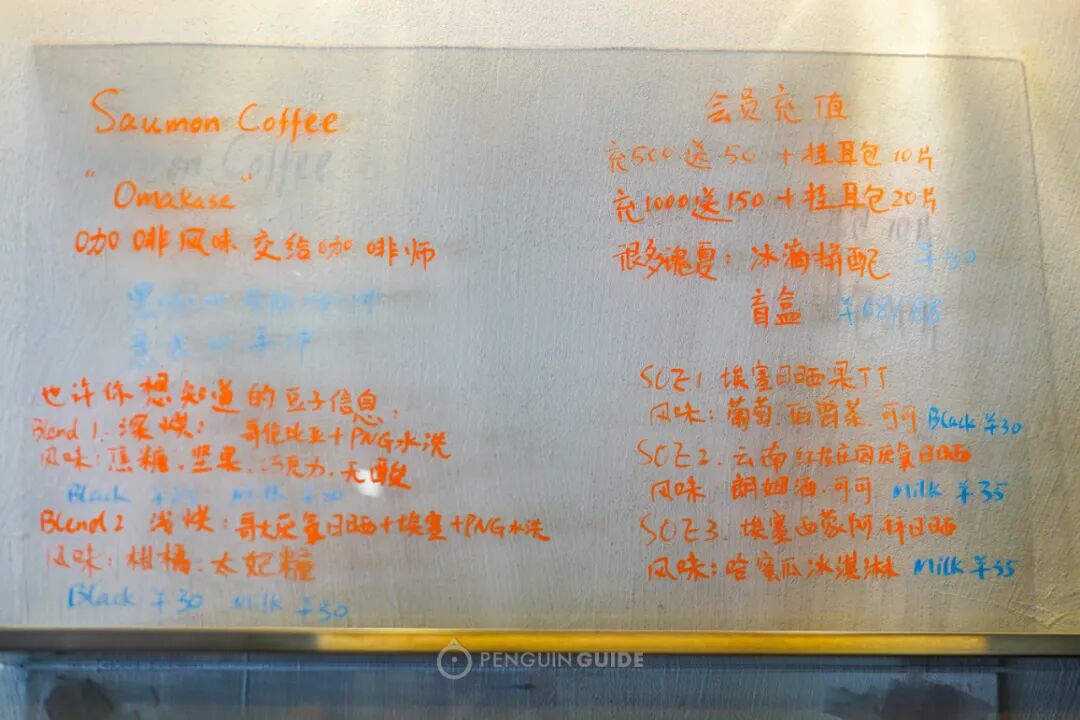 Saumon Coffee
"Omakase"
咖啡风味 交给咖啡师
手冲
也许你想知道的豆子信息:
Blend 1. 深烘: 哥伦比亚+PNG水洗
风味: 焦糖.坚果.巧克力.无酸
Black Milk
Blend 2 浅烘: 哥大厌氧日晒+埃塞+PNG水洗
风味: 柑橘.太妃糖
Black ¥30 Milk ¥30
会员充值
充500送50+挂耳包10片
充1000送150+挂耳包20片
很多瑰夏: 冰滴拼配 ¥50
盲盒 ¥68/88
SOE1 埃塞日晒果丁丁
风味: 葡萄.伯爵茶.可可 Black ¥30
SOE2. 云南红庄园厌氧日晒
风味 朗姆酒.可可 Milk ¥35
SOE3. 埃塞西蒙阿 日晒
风味: 哈蜜瓜冰淇淋 Milk ¥35
PENGUIN GUIDE